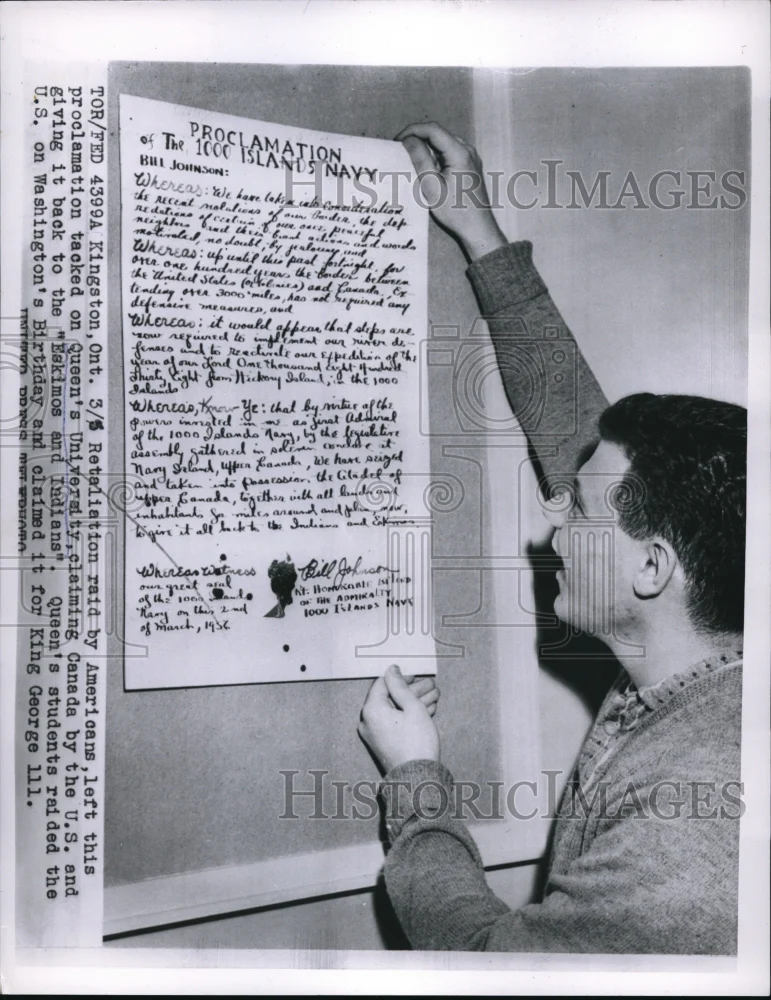 PROCLAMATION
of The 1000 ISLANDS NAVY
BILL JOHNSON:
Whereas: We have taken into consideration
the recent violations of our border, the dep-
redations of certain of our once peaceful
neighbors and their brash actions and words
motivated, no doubt, by jealousy and
Whereas: up until this past fortnight, for
over one hundred years the border between
the United States (or Colonies) and Canada, Ex-
tending over 3000 miles, has not required any
defensive measures, and
Whereas: it would appear that steps are
now required to implement our river de-
fenses and to reactivate our expedition of the
year of our Lord One thousand Eight Hundred
Thirty Eight from Hickory Island, in the 1000
Islands
Whereas, Know Ye: that by virtue of the
powers invested in me as first Admiral
of the 1000 Islands Navy, by the legislative
assembly gathered in solemn conclave at
Navy Island, Upper Canada, We have seized
and taken into possession the Citadel of
Upper Canada, together with all lands and
inhabitants for miles around and plan, now,
to give it all back to the Indians and Eskimos
Whereas Witness
our great seal
of the 1000 Islands
Navy on this 2nd
of March, 1956
Bill Johnson
Rt. Honorable 1st Lord
of the Admiralty
1000 Islands Navy
TOR/FED 4399A Kingston, Ont. 3/5 Retaliation raid by Americans, left this
proclamation tacked on Queen's University, claiming Canada by the U.S. and
giving it back to the "Eskimos and Indians". Queen's students raided the
U.S. on Washington's Birthday and claimed it for King George lll.
UNITED PRESS TELEPHOTO
HISTORICIMAGES
HISTORICIMAGES